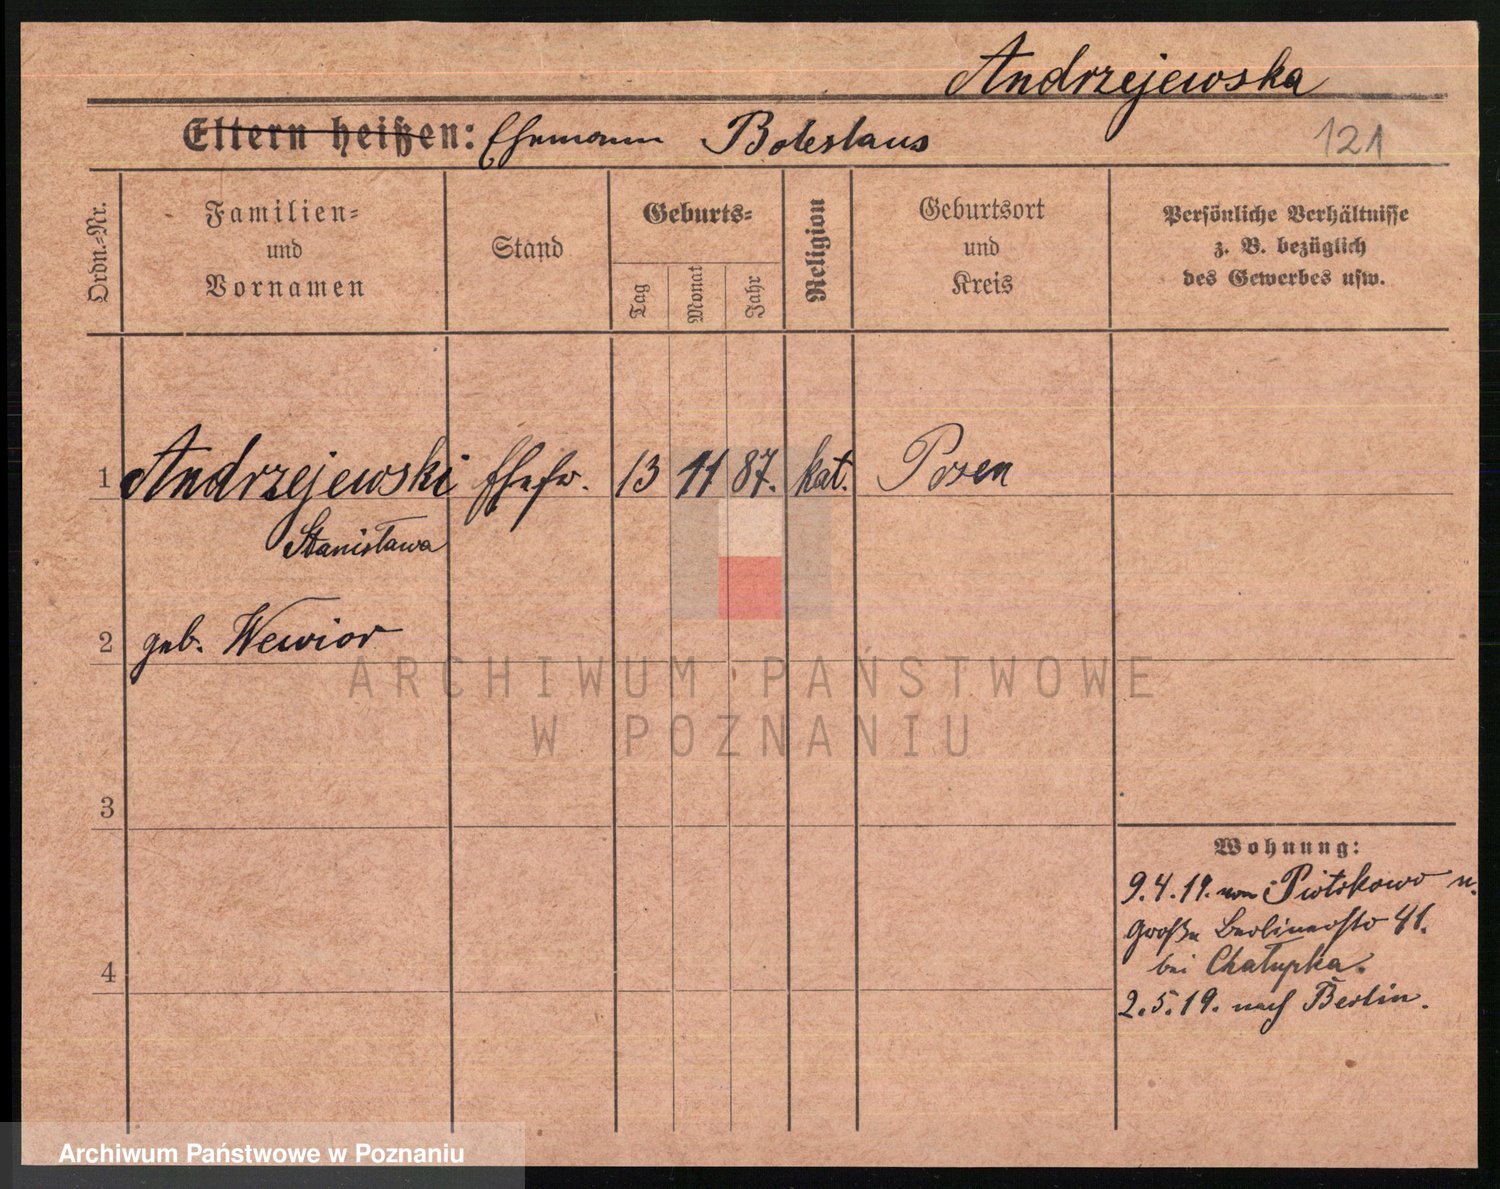 Andrzejewska
Eltern heißen: Ehemann Boleslaus
121
Ordn.-Nr.
Familien-
und
Vornamen
Stand
Geburts-
Tag
Monat
Jahr
Religion
Geburtsort
und
Kreis
Persönliche Verhältnisse
z. B. bezüglich
des Gewerbes usw.
1 Andrzejewski Ehefr. 13 11 87. kat. Posen
Stanisława
2 geb. Wewior
3
4
Wohnung:
9.4.19. von Piotrkowo n.
Große Berlinerstr 41.
bei Chałupka.
2.5.19. nach Berlin.
ARCHIWUM PAŃSTWOWE
W POZNANIU
Archiwum Państwowe w Poznaniu